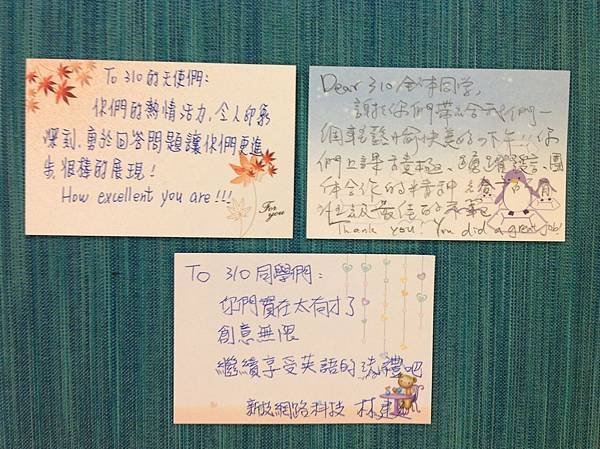 To 310的天使們:
你們的熱情活力,令人印象
深刻,勇於回答問題讓你們更進
步,很棒的展現!
How excellent you are!!!
For you
Dear 310全体同学,
謝謝你們帶給我們一
個輕鬆愉快美的下午!!你
們上課積極、踴躍發言、團
体合作的精神
最佳的
Thank you! You did a great job!
To 310同學們:
你們實在太有才了
創意無限
繼續享受英語的洗禮吧
新技網路科技 林